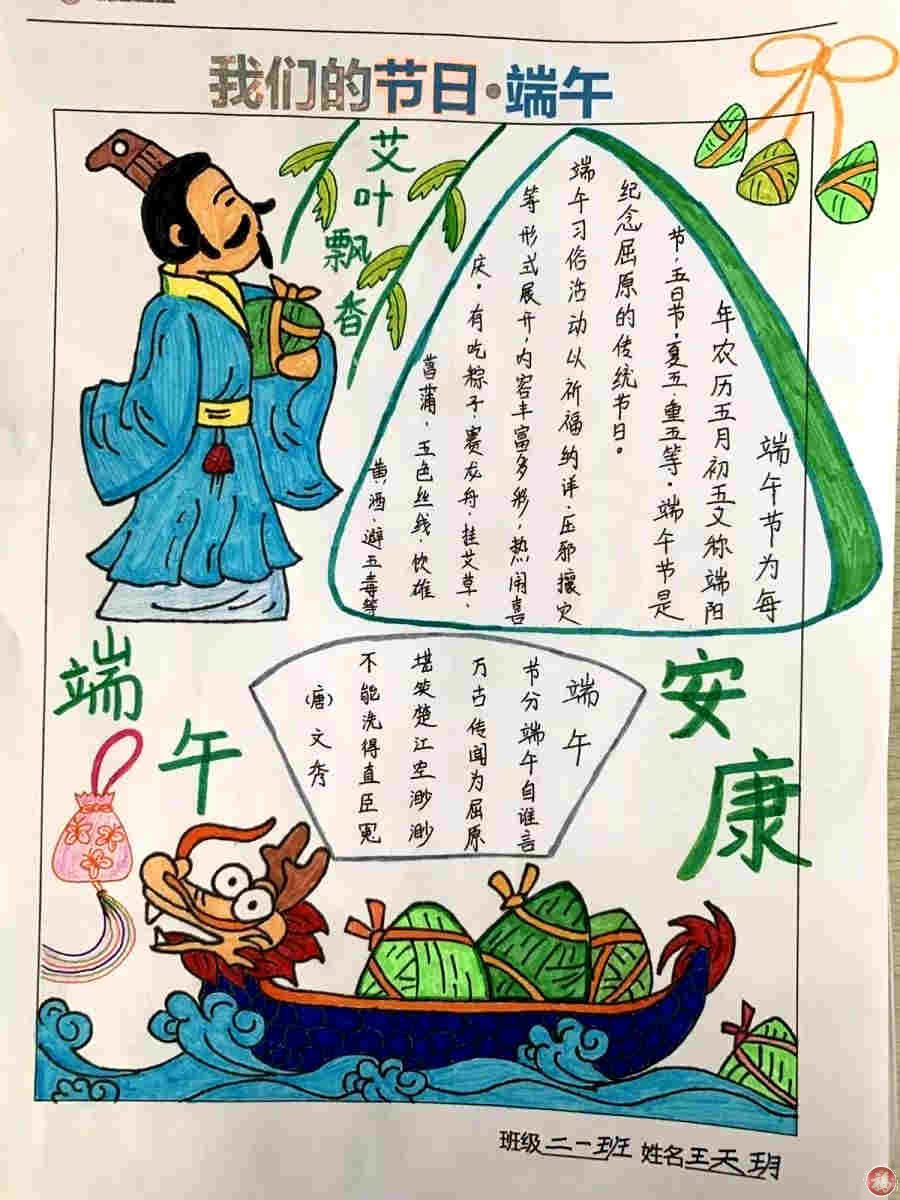 我们的节日·端午
艾叶飘香
端午节为每
年农历五月初五又称端阳
节、五日节、夏五、重五等。端午节是
纪念屈原的传统节日。
端午习俗活动以祈福纳详、压邪攘灾
等形式展开,内容丰富多彩,热闹喜
庆。有吃粽子、赛龙舟、挂艾草、
菖蒲、五色丝线、饮雄
黄酒、避五毒等
端午
安康
端午
节分端午自谁言
万古传闻为屈原
堪笑楚江空渺渺
不能洗得直臣冤
(唐)文秀
班级 二一班 姓名 王天玥
福